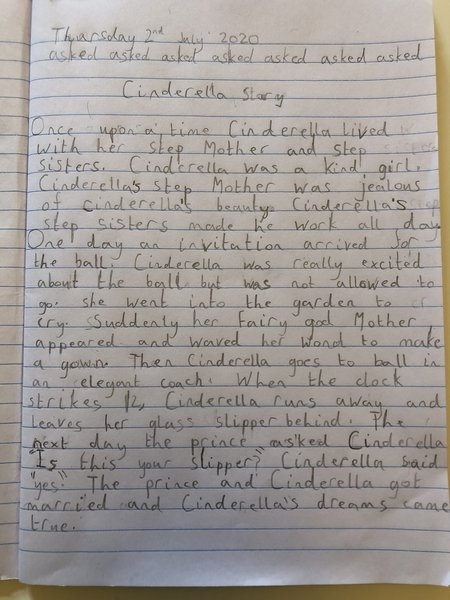 Thursday 2nd July 2020
asked asked asked asked asked asked asked
Cinderella Story
Once upon a time Cinderella lived
with her step Mother and step
sisters. Cinderella was a kind girl.
Cinderella's step Mother was jealous
of cinderella's beauty. Cinderella's
step sisters made he work all day
One day an invitation arrived for
the ball. Cinderella was really excited
about the ball but was not allowed to
go. she went into the garden to
cry. Suddenly her Fairy god Mother
appeared and waved her wond to make
a gown. Then Cinderella goes to ball in
an elegant coach. When the clock
strikes 12, Cinderella runs away and
leaves her glass slipper behind. The
next day the prince asked Cinderella
"Is this your slipper?" Cinderella said
"yes." The prince and Cinderella got
married and Cinderella's dreams came
true.